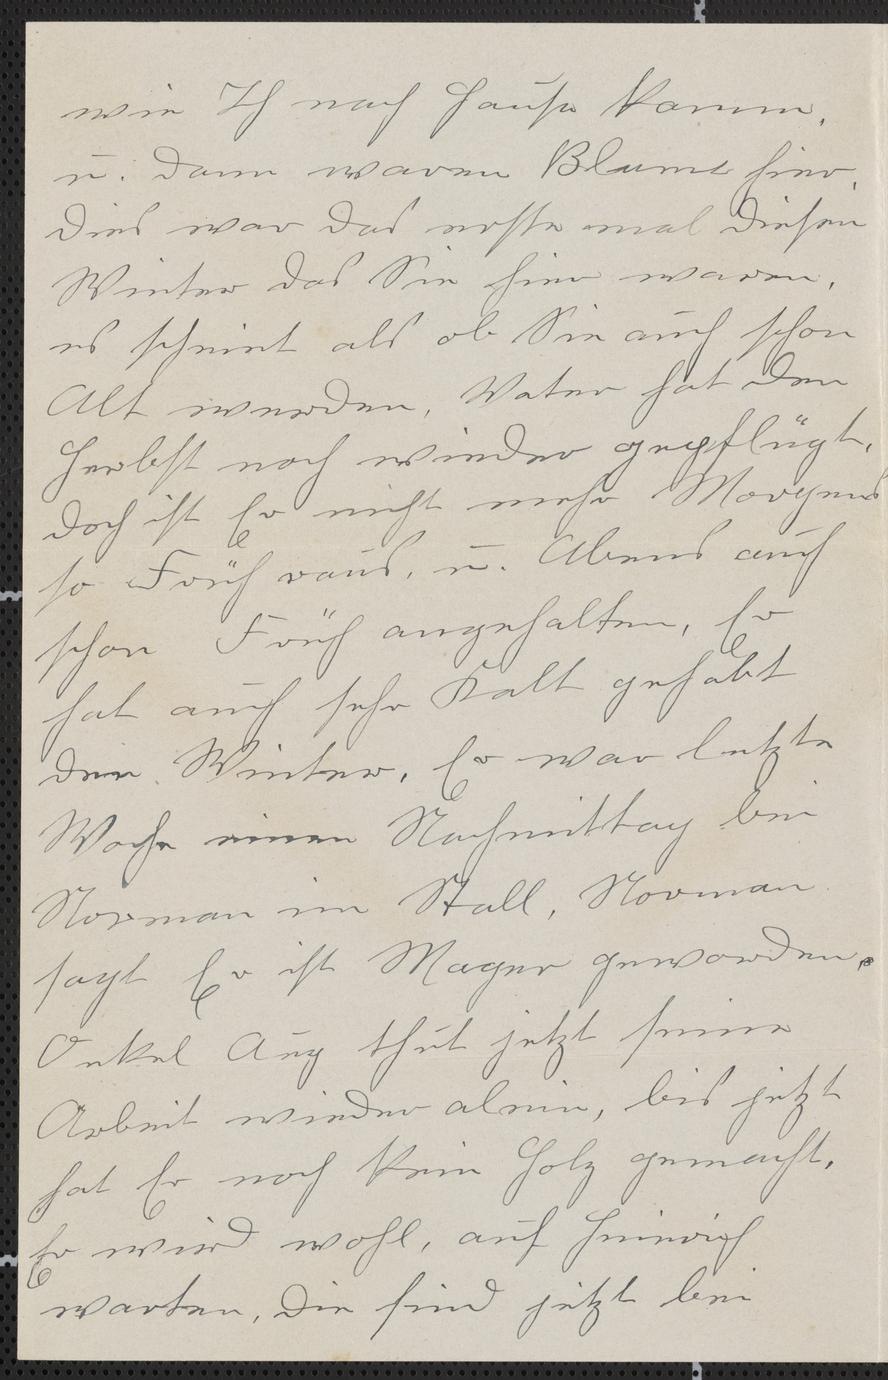 wie Ich nach Hause kamm,
u. dann waren Blume hier,
dies war das erste mal diesen
Winter das Sie hier waren,
es scheint als ob Sie auch schon
Alt werden, Vater hat den
Herbst noch wieder gepflügt,
doch ist Er nicht mehr Morgens
so Früh raus, u. Abens auch
schon Früh angehalten, Er
hat auch sehr Kalt gehabt
den Winter, Er war letzte
Woche einen Nachmittag bei
Norman im Stall, Norman
sagt Er ist Mager geworden.
Onkel Aug thut jetzt seine
Arbeit wieder alein, bis jetzt
hat Er noch kein Holz gemacht,
Er wird wohl, auf Heinrich
warten, die sind jetzt bei